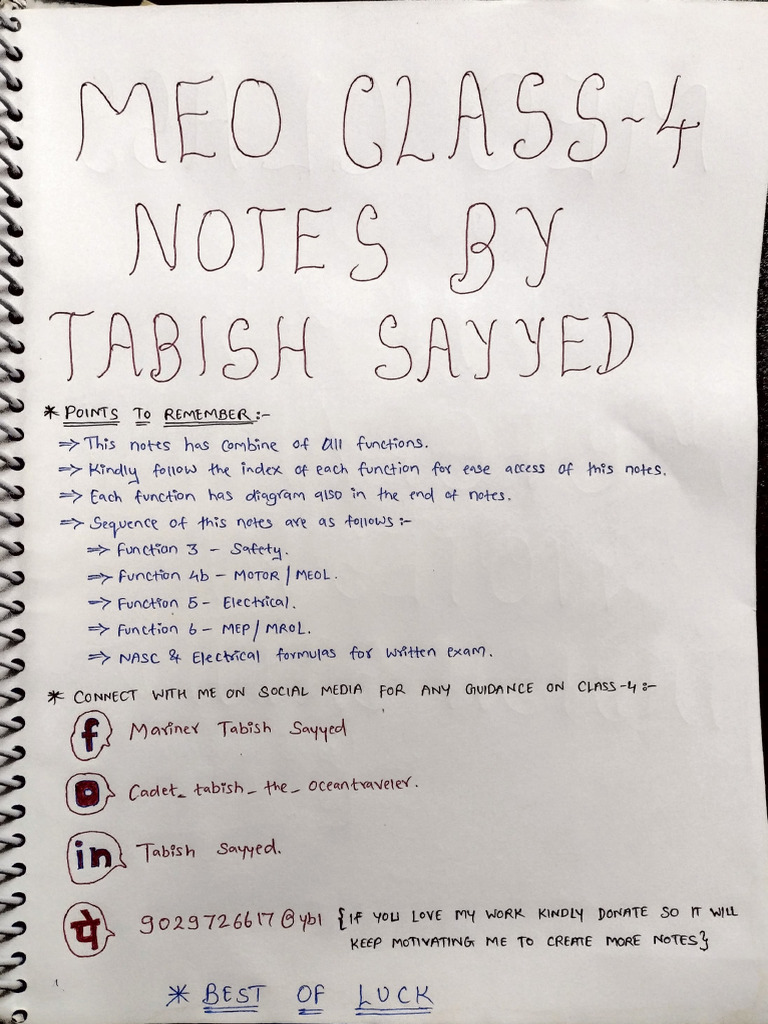 MEO CLASS-4
NOTES BY
TABISH SAYYED
* POINTS TO REMEMBER:-
⇒ This notes has combine of all functions.
⇒ Kindly follow the index of each function for ease access of this notes.
⇒ Each function has diagram also in the end of notes.
⇒ Sequence of this notes are as follows:-
⇒ Function 3 - Safety.
⇒ Function 4b - MOTOR / MEOL.
⇒ Function 5 - Electrical.
⇒ Function 6 - MEP / MROL.
⇒ NASC & Electrical formulas for written exam.
* CONNECT WITH ME ON SOCIAL MEDIA FOR ANY GUIDANCE ON CLASS-4:-
f Mariner Tabish Sayyed
Cadet_tabish_the_oceantraveler.
in Tabish Sayyed.
पे 9029726617@ybl {IF YOU LOVE MY WORK KINDLY DONATE SO IT WILL
KEEP MOTIVATING ME TO CREATE MORE NOTES}
* BEST OF LUCK